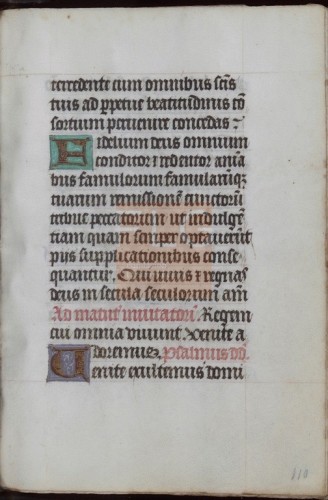 tercedente cum omnibus scis
tuis ad ppetue beatitudinis co
sortium peruenire concedas :
Fidelium deus omnium
conditor et redemtor aia
bus famulorum famularuq;
tuarum remissione cunctoru
tribue peccatorum ut indulge
tiam quam semper optauerut
pys supplicationibus conse
quantur. Qui uiuis et regnas
deus in secula seculorum am
Ad matut inuitatori. Regem
cui omnia uiuunt. Uenite a
doremus. Psalmus dd.
Uenite exultemus domi
110